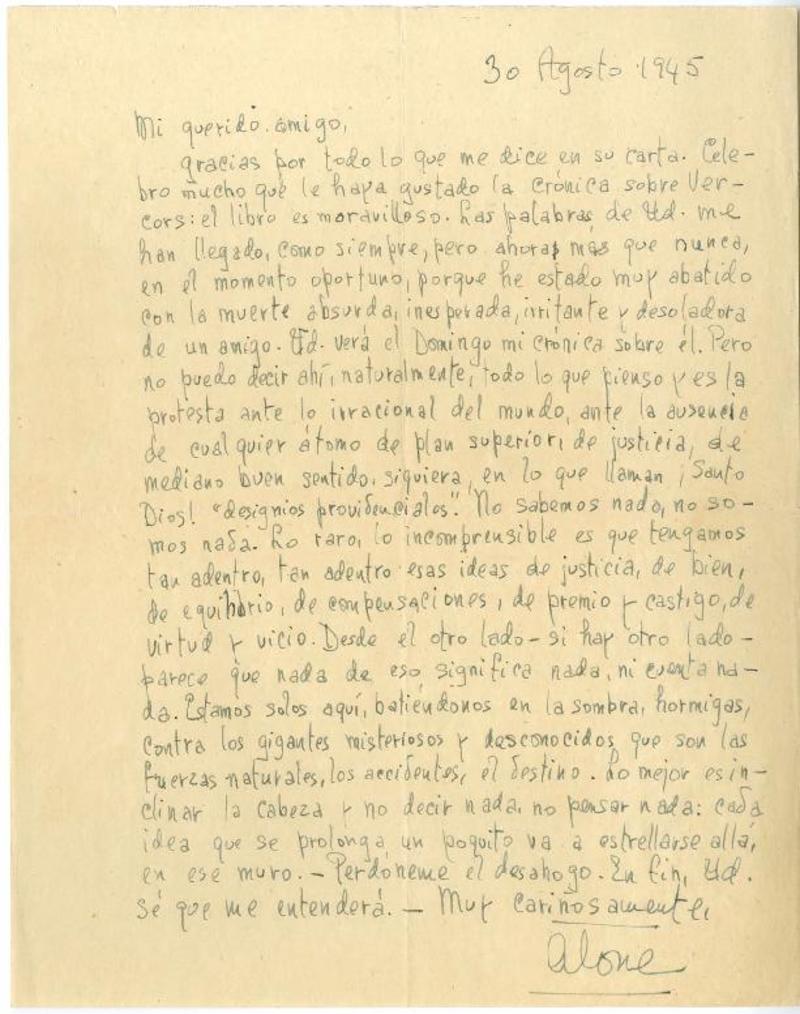 30 Agosto 1945
Mi querido amigo,
gracias por todo lo que me dice en su carta. Cele-
bro mucho que le haya gustado la crónica sobre Ver-
cors: el libro es maravilloso. Las palabras de Ud. me
han llegado, como siempre, pero ahora más que nunca,
en el momento oportuno, porque he estado muy abatido
con la muerte absurda, inesperada, irritante y desoladora
de un amigo. Ud. verá el Domingo mi crónica sobre él. Pero
no puedo decir ahí, naturalmente, todo lo que pienso y es la
protesta ante lo irracional del mundo, ante la ausencia
de cualquier átomo de plan superior, de justicia, de
mediano buen sentido, siquiera, en lo que llaman ¡Santo
Dios! "designios providenciales". No sabemos nada, no so-
mos nada. Lo raro, lo incomprensible es que tengamos
tan adentro, tan adentro esas ideas de justicia, de bien,
de equilibrio, de compensaciones, de premio y castigo, de
virtud y vicio. Desde el otro lado - si hay otro lado -
parece que nada de eso significa nada, ni cuenta na-
da. Estamos solos aquí, batiéndonos en la sombra, hormigas,
contra los gigantes misteriosos y desconocidos que son las
fuerzas naturales, los accidentes, el destino. Lo mejor es in-
clinar la cabeza y no decir nada, no pensar nada: cada
idea que se prolonga un poquito va a estrellarse allá,
en ese muro. - Perdóneme el desahogo. En fin, Ud.
sé que me entenderá. - Muy cariñosamente,
Alone